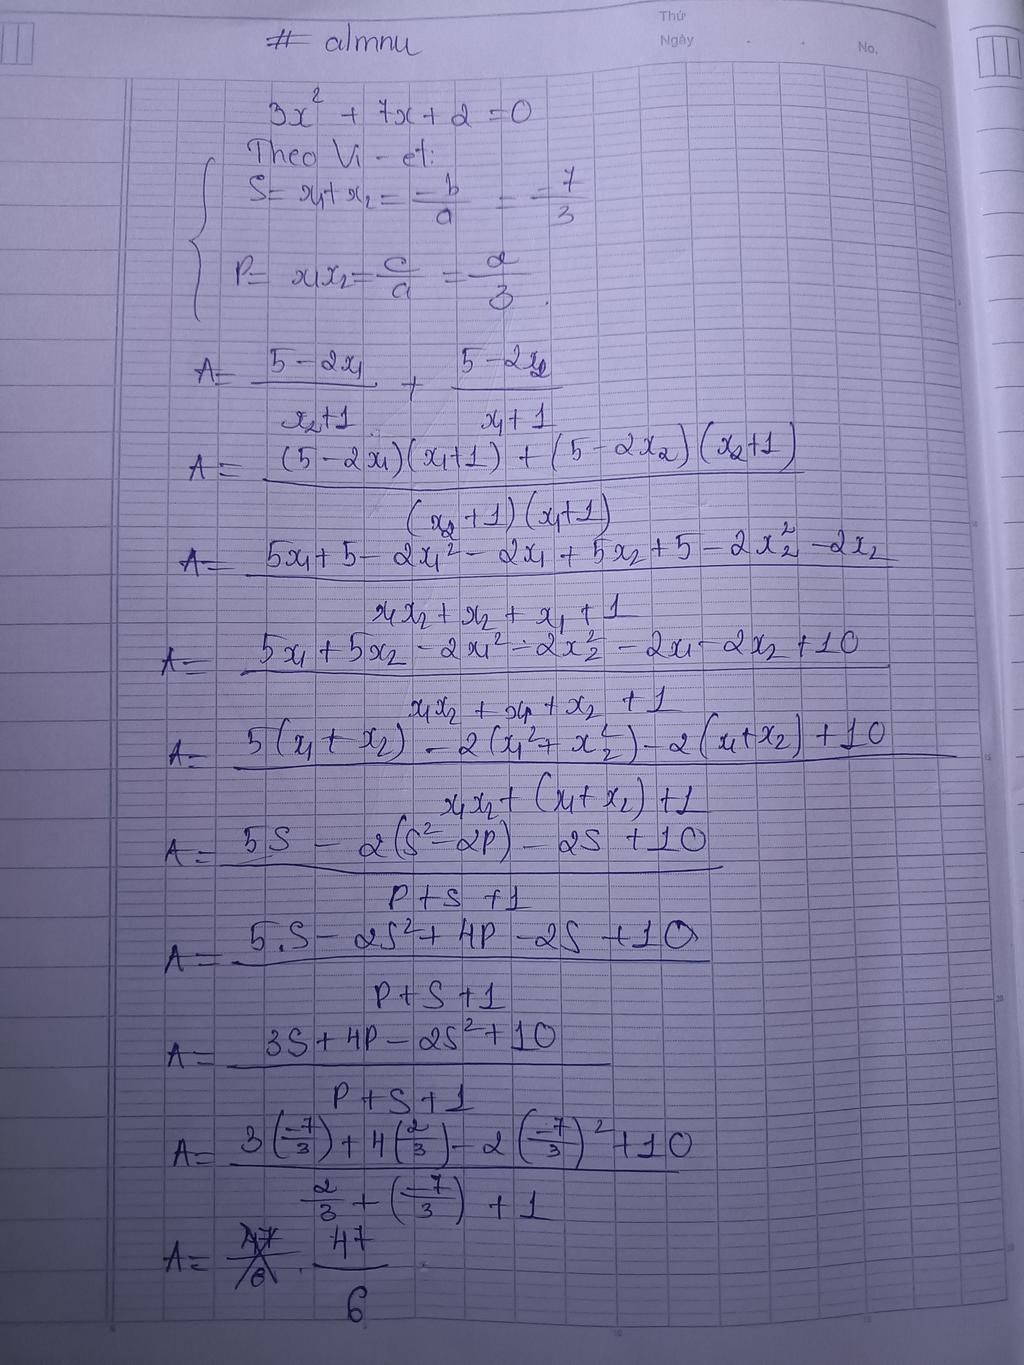 Thứ
Ngày . . No.
# almnu
3x² + 7x + 2 = 0
Theo Vi-et:
S = x₁ + x₂ = -b/a = -7/3
P = x₁x₂ = c/a = 2/3.
A = (5 - 2x₁)/(x₂ + 1) + (5 - 2x₂)/(x₁ + 1)
A = ((5 - 2x₁)(x₁ + 1) + (5 - 2x₂)(x₂ + 1))/((x₂ + 1)(x₁ + 1))
A = (5x₁ + 5 - 2x₁² - 2x₁ + 5x₂ + 5 - 2x₂² - 2x₂)/(x₁x₂ + x₂ + x₁ + 1)
A = (5x₁ + 5x₂ - 2x₁² - 2x₂² - 2x₁ - 2x₂ + 10)/(x₁x₂ + x₁ + x₂ + 1)
A = (5(x₁ + x₂) - 2(x₁² + x₂²) - 2(x₁ + x₂) + 10)/(x₁x₂ + (x₁ + x₂) + 1)
A = (5S - 2(S² - 2P) - 2S + 10)/(P + S + 1)
A = (5.S - 2S² + 4P - 2S + 10)/(P + S + 1)
A = (3S + 4P - 2S² + 10)/(P + S + 1)
A = (3(-7/3) + 4(2/3) - 2(-7/3)² + 10)/(2/3 + (-7/3) + 1)
A = 47/6